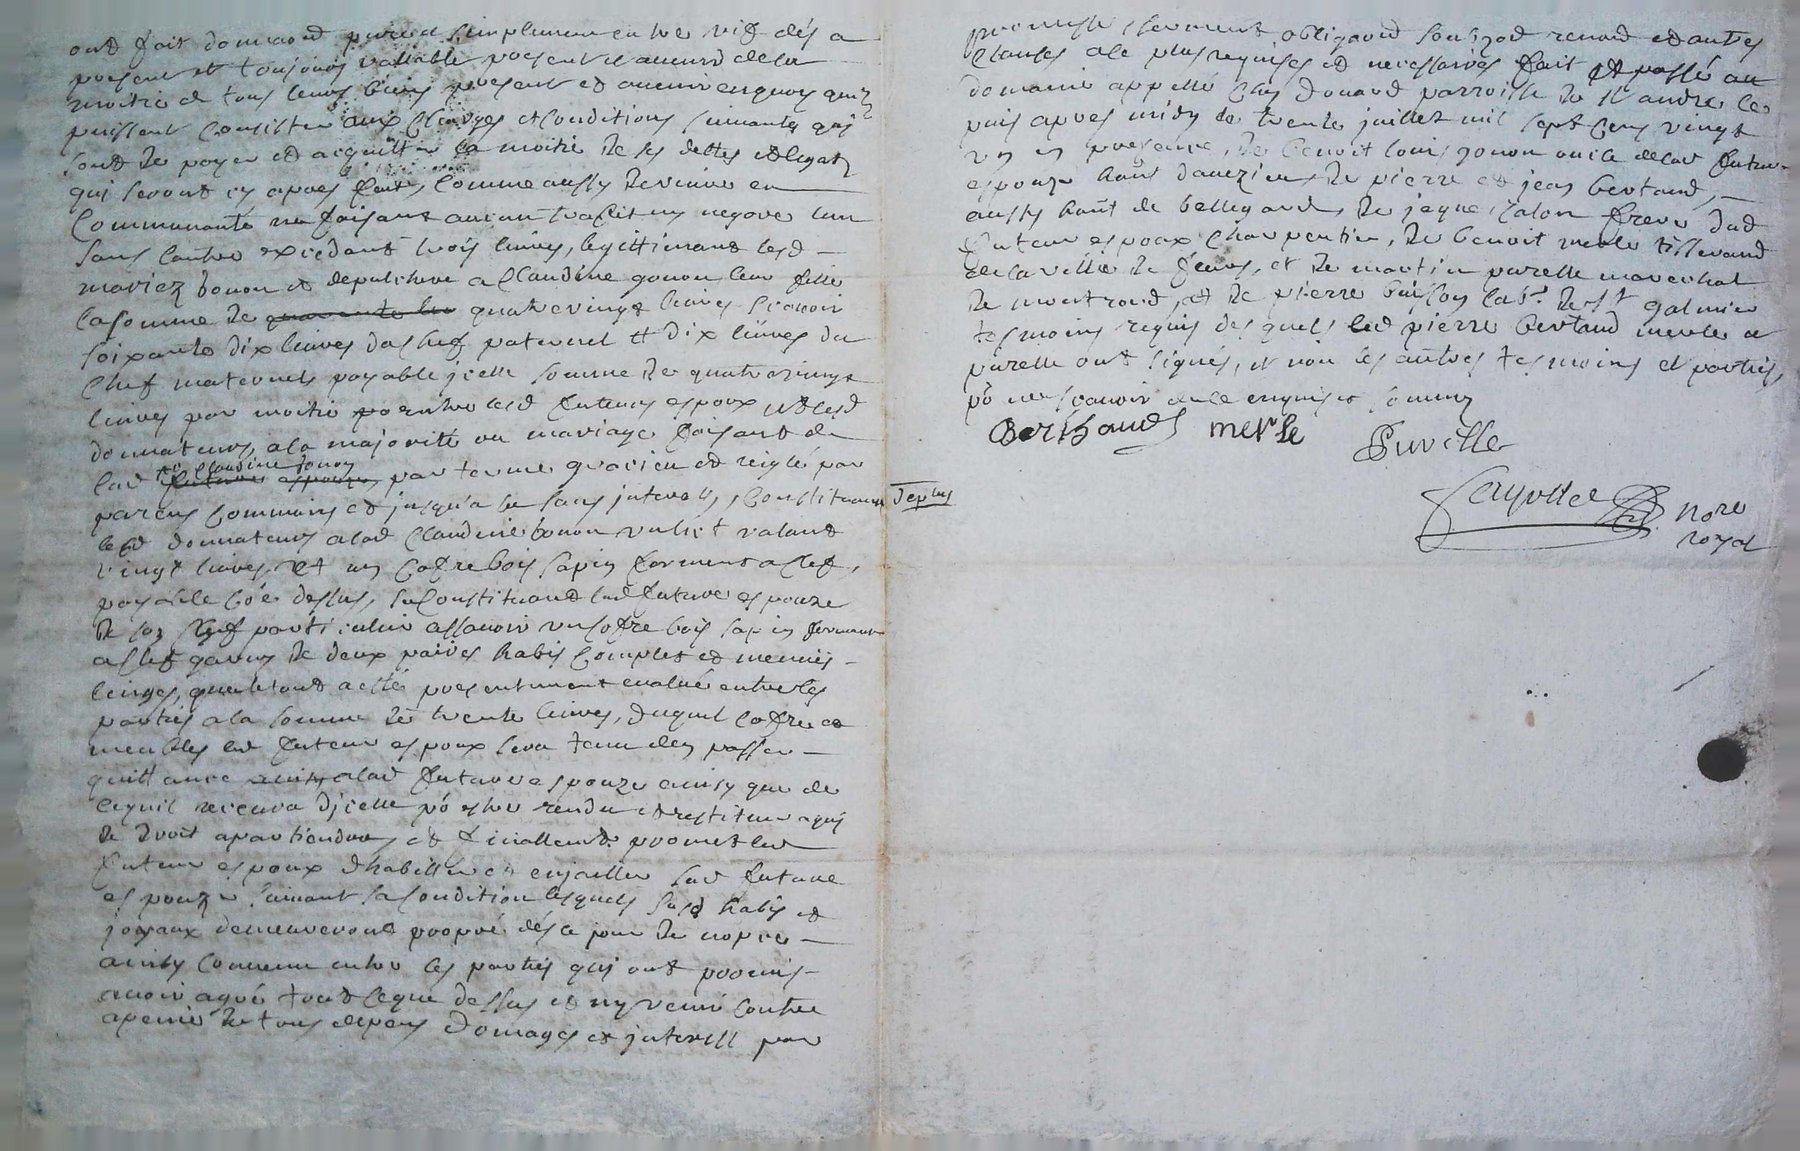 ont fait donnaond pure et simplement entre vifs dés a
present et toujours vallable present et advenir de la
moitié de tous leurs biens present et avenir enquoy quilz
puissent consister aux charges et conditions suivantes qui
sont de payer et acquitter la moitié de ses dettes et legats
qui seront cy apres faits comme aussy de vivre en
communauté ne faisant aucun traffit ny negoce lun
sans lautre excedant trois livres, legittimant lesd
mariez gonon et depulchere a Claudine gonon leur fille
la somme de quarante liv quatrevingt livres scavoir
soixante dix livres du chef paternel et dix livres du
chef maternel payable jcelle somme de quatrevingt
livres par moitié par entre lesd futeurs espoux et lesd
donnateurs, a la majorité ou mariage faisant de
lad Claudine gonon future espouze par terme gracieux et reiglé par
parens communs et jusqu'a ce sans interests, constituant de plus
lesd donnateurs a lad Claudine gonon un lict valant
vingt livres et un coffre bois sapin ferment a clef,
payable coe dessus, se constituant lad future espouze
de son chef particulier assavoir un coffre bois sapin fermant
a clef garny de deux paires habis complet et menuis
linges, que le tout a esté presentement evalué entre les
parties a la somme de trente livres, duquel coffre et
meubles led futeur espoux sera tenu den passer
quittance a lad future espouze ainsy que de
ce quil recevra djcelle pō estre rendu et restitué a qui
de droit apartiendra, et finallemt promet led
futeur espoux dhabiller et enjoaller sad future
espouze suivant sa condition lesquels susd habis et
joyaux demeureront propre dés ce jour de nopces
ainsy convenu entre les parties qui ont promis
avoir agreé tout ce que dessus et ny venir contre
a peine de tous depens domages et interest par
promesse serment obligaond soubzond renond et autres
clauses de plus requises et necessaires fait et passé au
domaine appellé chez Douard parroisse de st andre le
puis apres midy le trente juillet mil sept cens vingt
un en presence, de benoit louis gonon oncle de lad future
espouze hānt daveizieu, de pierre et jean bertaud,
aussy hānt de bellegarde, de jaque talon frere dud
futeur espoux charpentier, de benoit merle tisserand
de la ville de feurs, et de martin purelle marechal
de montrond, et de pierre buisson labr de st galmier
tesmoins requis desquels led pierre bertaud merle et
purelle ont signés, et non les autres tesmoins et parties,
pō ne scavoir de ce enquis et sommés
Berthaud merle Purelle
nore
royal